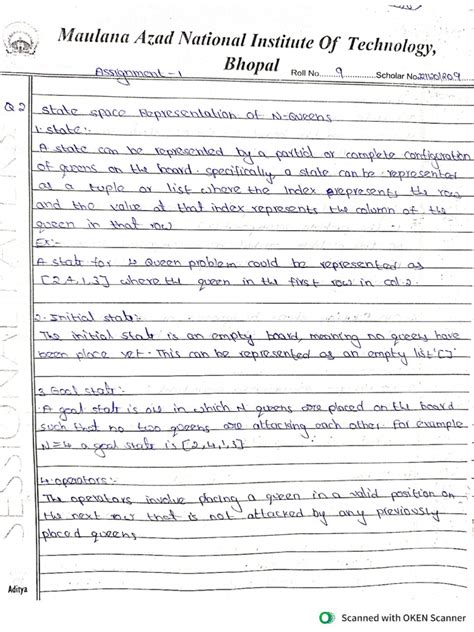 Maulana Azad National Institute Of Technology,
Bhopal
Assignment - 1
Roll No. 9 Scholar No.
Q2 state space Representation of N-Queens
1. state:-
A state can be represented by a partial or complete configuration
of queens on the board. specifically a state can be represented
as a tuple or list where the index represents the row
and the value at that index represents the column of the
queen in that row
Ex:-
A state for 4 Queen problem could be represented as
[2,4,1,3] where the queen in the first row in col 2.
2. Initial state:-
The initial state is an empty board, meaning no queens have
been place yet. This can be represented as an empty list '[]'
3. Goal state:-
A goal state is one in which N queens are placed on the board
such that no two queens are attacking each other. For example
N=4 a goal state is [2,4,1,3]
4. operators:-
The operators involve placing a queen in a valid position on
the next row that is not attacked by any previously
placed queens
SESSIONAL
Aditya
Scanned with OKEN Scanner